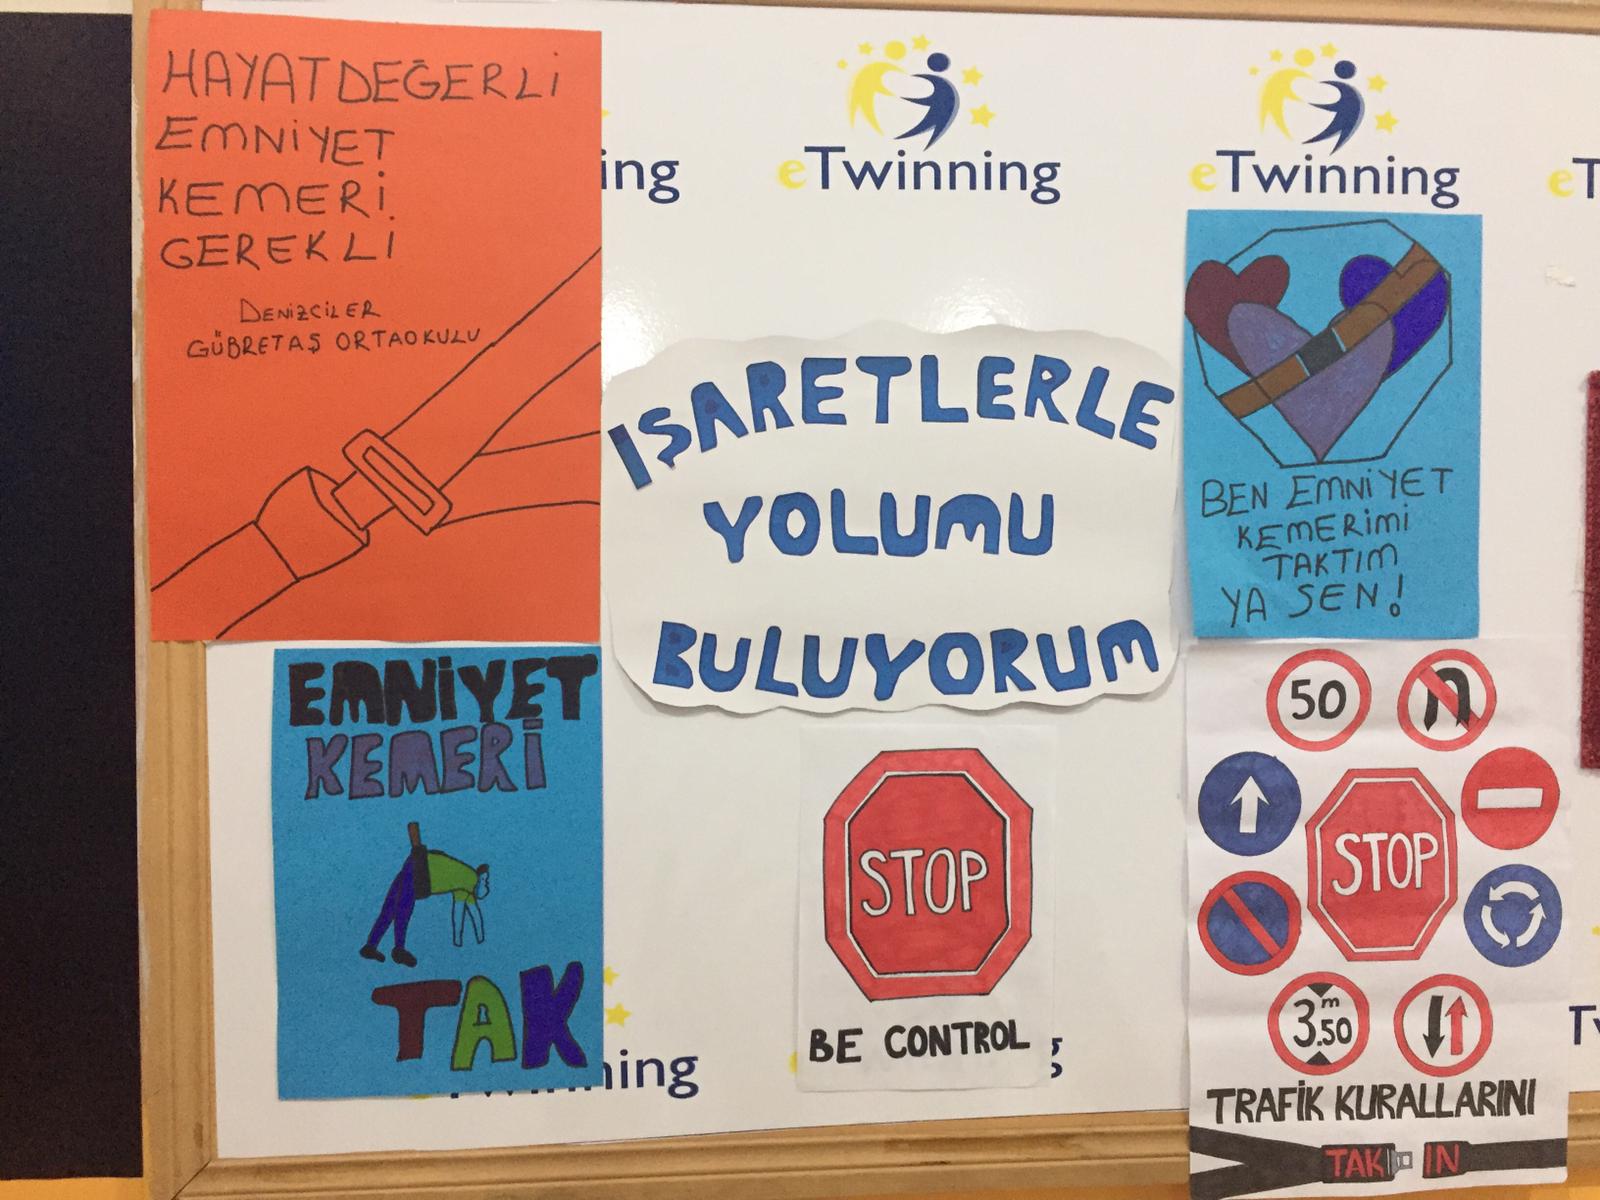 HAYAT DEĞERLİ
EMNİYET
KEMERİ
GEREKLİ
DENİZCİLER
GÜBRETAŞ ORTAOKULU
ing
eTwinning
eTwinning
eT
IŞARETLERLE
YOLUMU
BULUYORUM
BEN EMNİYET
KEMERİMİ
TAKTIM
YA SEN!
EMNİYET
KEMERİ
TAK
STOP
BE CONTROL
50
STOP
3.50
m
TRAFİK KURALLARINI
TAK IN
ning
g
T